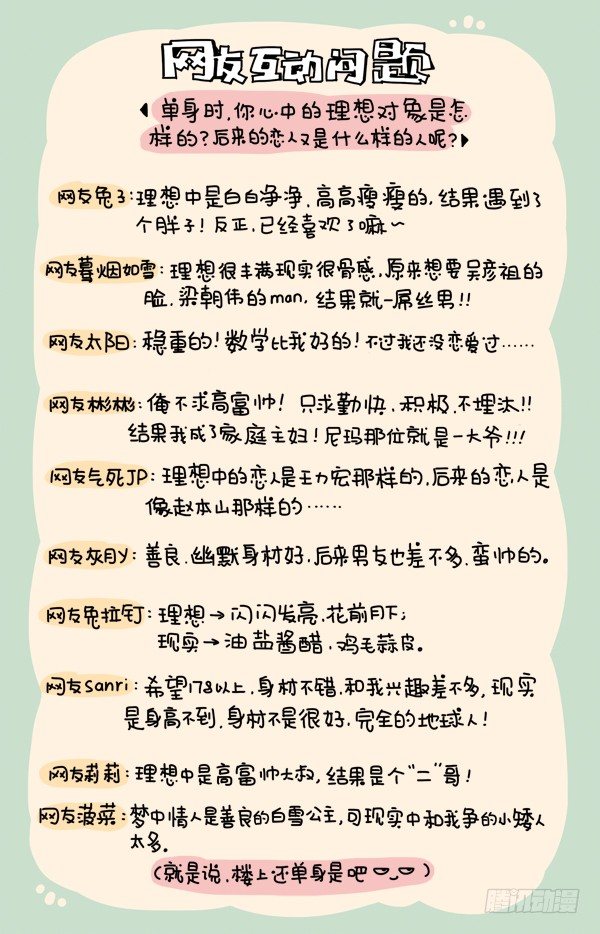 网友互动问题
单身时,你心中的理想对象是怎
样的?后来的恋人又是什么样的人呢?
网友兔子:理想中是白白净净,高高瘦瘦的,结果遇到了
个胖子!反正,已经喜欢了嘛~
网友暮烟如雪:理想很丰满现实很骨感,原来想要吴彦祖的
脸,梁朝伟的man,结果就一屌丝男!!
网友太阳:稳重的!数学比我好的!不过我还没恋爱过……
网友彬彬:俺不求高富帅!只求勤快,积极,不埋汰!!
结果我成了家庭主妇!尼玛那位就是一大爷!!!
网友气死JP:理想中的恋人是王力宏那样的,后来的恋人是
像赵本山那样的……
网友灰月Y:善良,幽默身材好,后来男友也差不多,蛮帅的。
网友兔拉钉:理想→闪闪发亮,花前月下;
现实→油盐酱醋,鸡毛蒜皮。
网友Sanri:希望178以上,身材不错,和我兴趣差不多,现实
是身高不到,身材不是很好,完全的地球人!
网友莉莉:理想中是高富帅大叔,结果是个"二"哥!
网友菠菜:梦中情人是善良的白雪公主,可现实中和我争的小矮人
太多。
(就是说,楼上还单身是吧)
腾讯动漫